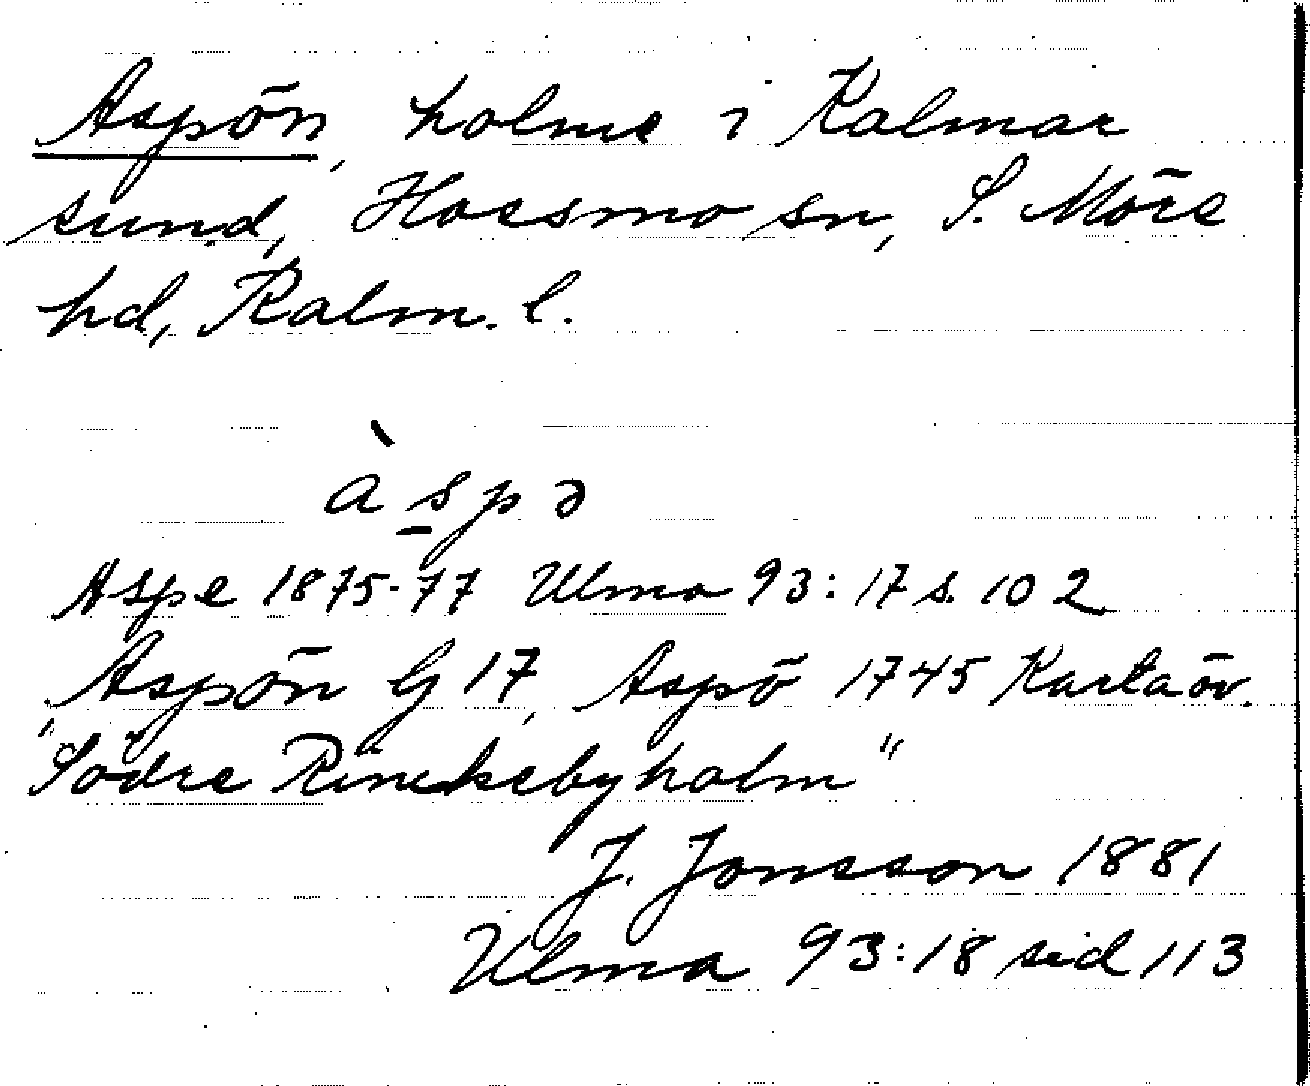 Aspön, holme i Kalmar
sund, Hossmo sn, S. Möre
hd, Kalm. l.
àspə
Aspe 1875-77 Ulma 93:17 s. 102
Aspön G 17, Aspö 1745 Karta öv.
"Södre Rinckebyholm"
J. Jonsson 1881
Ulma 93:18 sid 113